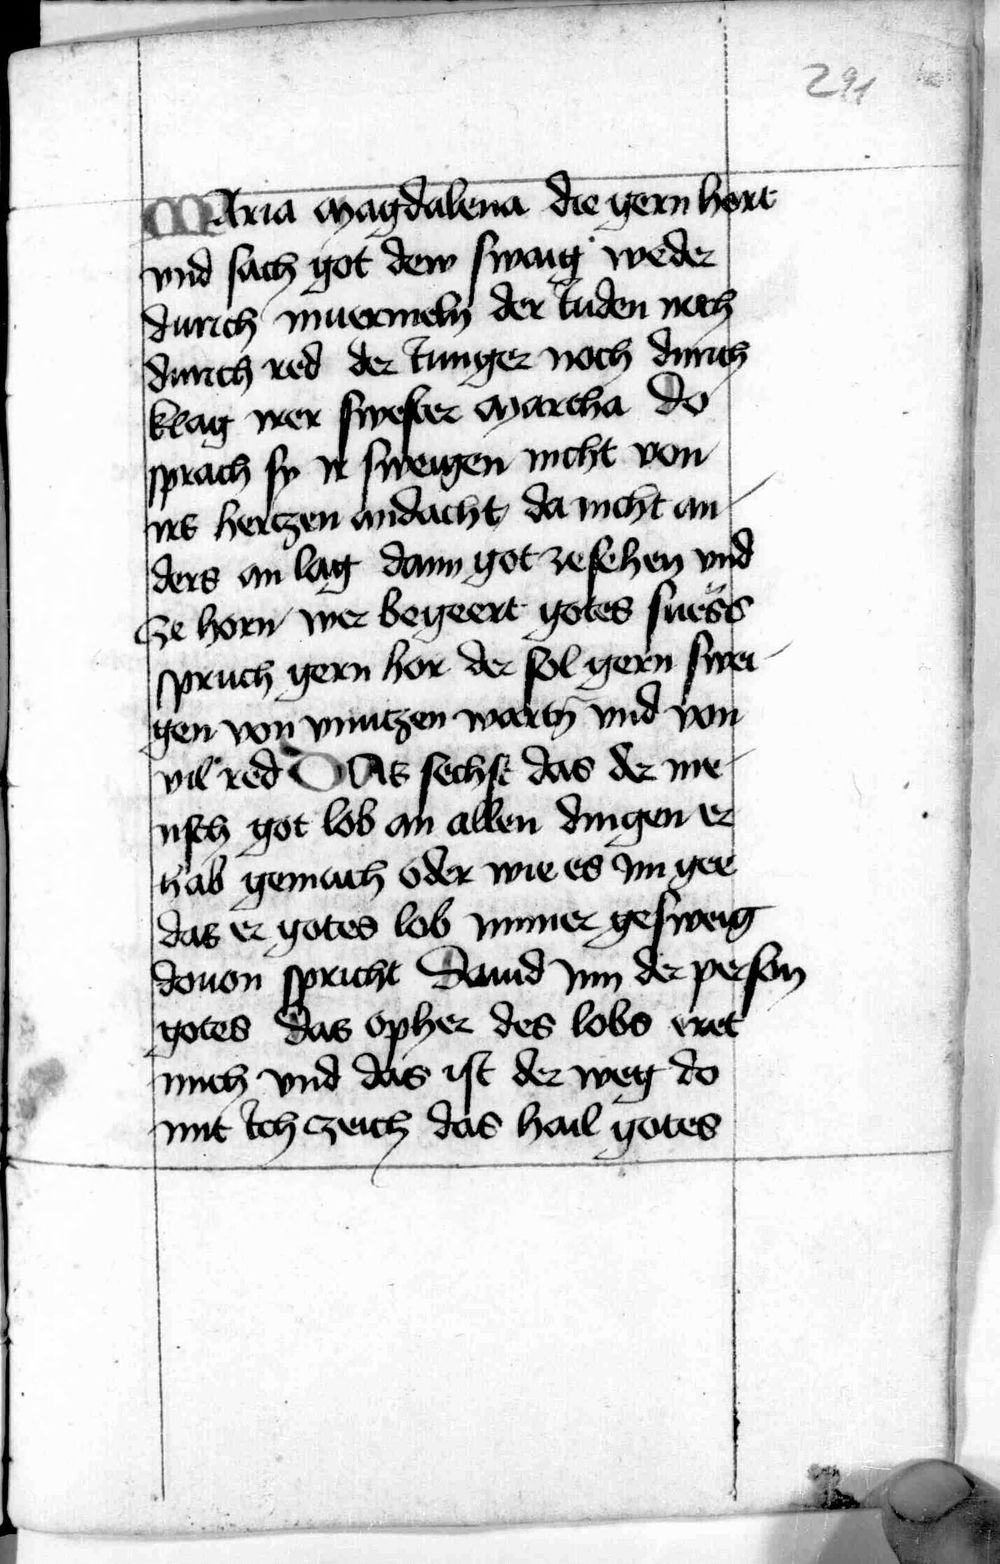 291
MAria Magdalena die gern hort
vnd sach got dew swaig weder
durich muermeln der Juden noch
durich red der Junger noch durich
klag irer swester Martha Do
sprach sy ir sweigen nicht von
irs hertzen andacht da nicht an
ders an lag dann got ze sehen vnd
ze horn wer begeert gotes suess
spruch gern hor der sol gern swei
gen von vnnutzen wortn vnd von
vil red DAs sechst das der me
nsch got lob an allen dingen er
hab gemach oder wie es im gee
das er gotes lob nymmer gesweig
douon spricht Dauid inn der person
gotes das opher des lobs eret
mich vnd das ist der weg do
mit Ich czeich das hail gotes